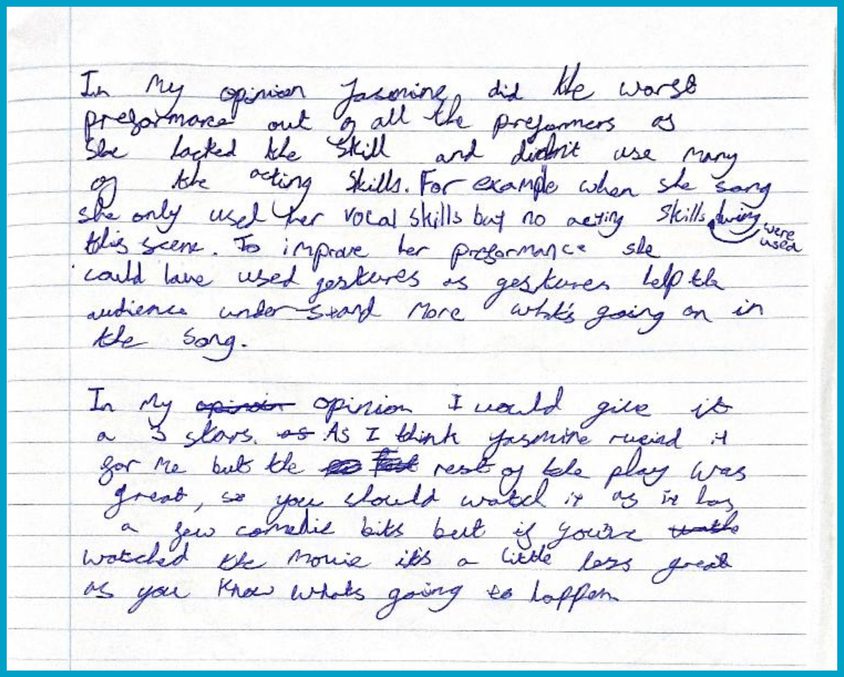 In my opinion Jasmine did the worst
preformance out of all the preformers as
She lacked the skill and didn't use many
of the acting skills. For example when she sang
she only used her vocal skills but no acting skills were used during
this scene. To improve her preformance she
could have used gestures as gestures help the
audience understand more what's going on in
the song.
In my opinion opinion I would give it
a 3 stars. as As I think Jasmine rueind it
for me but the rest of the play was
great, so you should watch it as it has
a few comedic bits but if you've
watched the movie it's a little less great
as you know whats going to happen